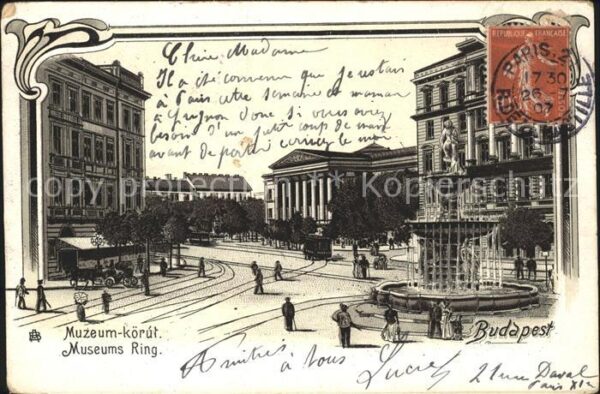 Chère Madame
Il a été convenu que je restais
à Paris cette semaine et maman
à Avignon donc si vous avez
besoin d'un petit coup de main
avant de partir écrivez le moi
REPUBLIQUE FRANÇAISE
PARIS-2
17 30
26
07
Copyright protected
Muzeum-körút.
Museums Ring.
Budapest
Amitiés
à tous
Lucie
21 rue Daval
Paris XIe